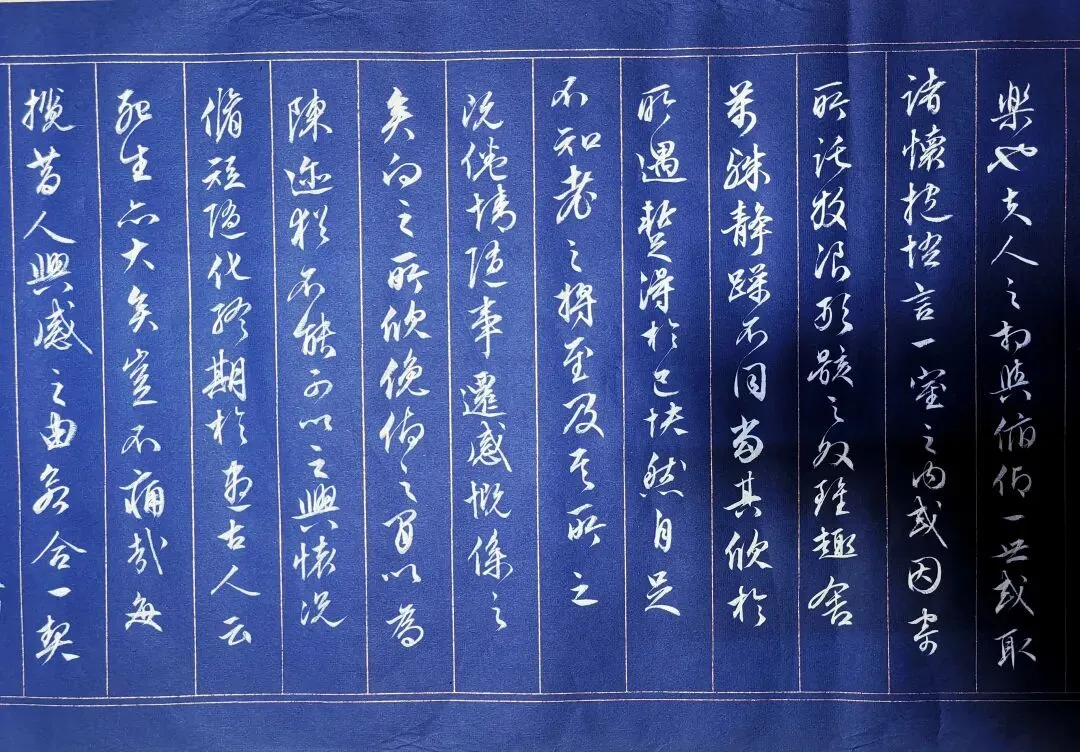 樂也夫人之相與俯仰一世或取
諸懷抱悟言一室之內或因寄
所託放浪形骸之外雖趣舍
萬殊靜躁不同當其欣於
所遇暫得於己快然自足
不知老之將至及其所之
既倦情隨事遷感慨係之
矣向之所欣俛仰之間以為
陳迹猶不能不以之興懷況
脩短隨化終期於盡古人云
死生亦大矣豈不痛哉每
攬昔人興感之由若合一契